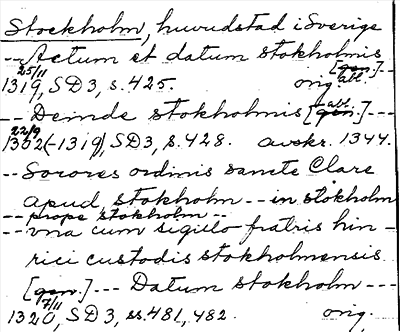 Stockholm, huvudstad i Sverige
-- Actum et datum stokholmis
[gen.]--
25/11 abl.
1319, SD3, s. 425. orig.
-- Deinde stokholmis [gen.] ---
abl.
22/9
1302(-1319), SD3, s. 428. avskr. 1344.
-- Sorores ordinis sancte Clare
apud stokholm -- in stokholm
-- prope stokholm --
-- vna cum sigillo fratris hin-
rici custodis stokholmensis
[gen.] --- Datum stokholm ---
7/11
1320, SD3, ss. 481, 482. orig.